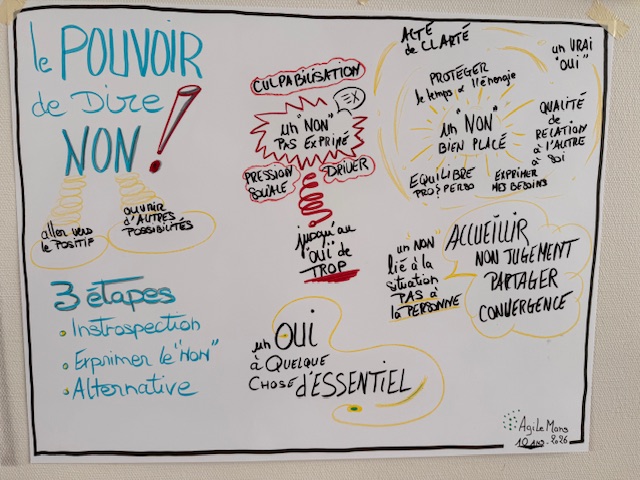 le POUVOIR
de Dire
NON !
aller vers
le POSITIF
OUVRIR
D'AUTRES
POSSIBILITÉS
3 étapes
Instrospection
Exprimer le "NON"
Alternative
CULPABILISATION
EX
un "NON"
PAS EXPRIMÉ
PRESSION
SOCIALE
DRIVER
jusqu'au
"OUI" de
TROP
un OUI
à QUELQUE
CHOSE d'ESSENTIEL
ACTE
de CLARTÉ
un VRAI
"OUI"
PROTÉGER
le temps & l'énergie
un "NON"
BIEN PLACÉ
QUALITÉ
de
RELATION
à L'AUTRE
à SOI
EQUILIBRE
PRO/PERSO
EXPRIMER
MES BESOINS
un "NON"
lié à la
situation
PAS à
la PERSONNE
ACCUEILLIR
NON JUGEMENT
PARTAGER
CONVERGENCE
AgiLeMans
10 ans - 2026